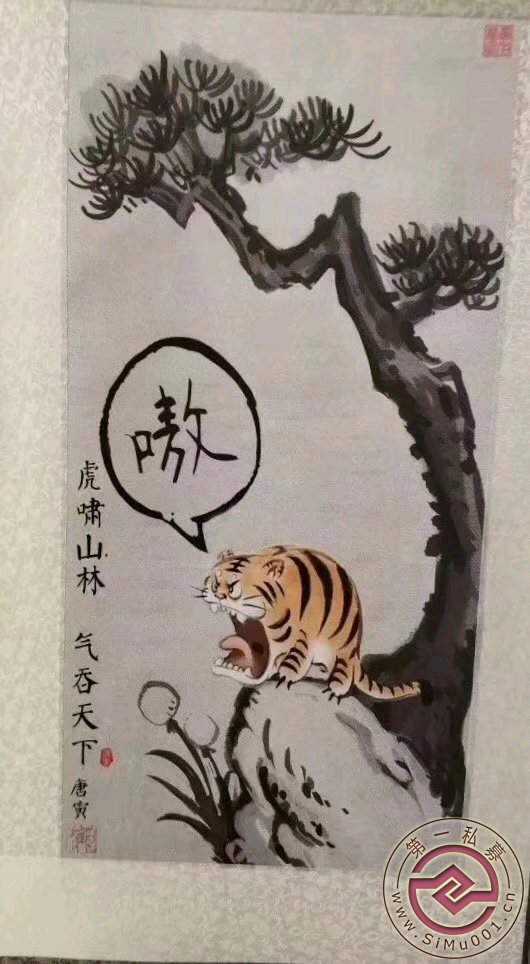 嗷
虎啸山林 气吞天下
唐寅
第一私募
www.SiMu001.cn